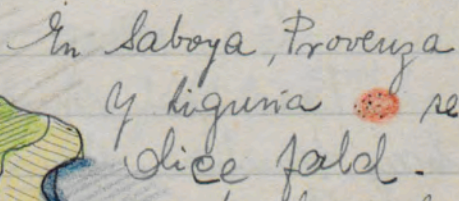 En Saboya, Provenza
y Liguria se
dice fald.